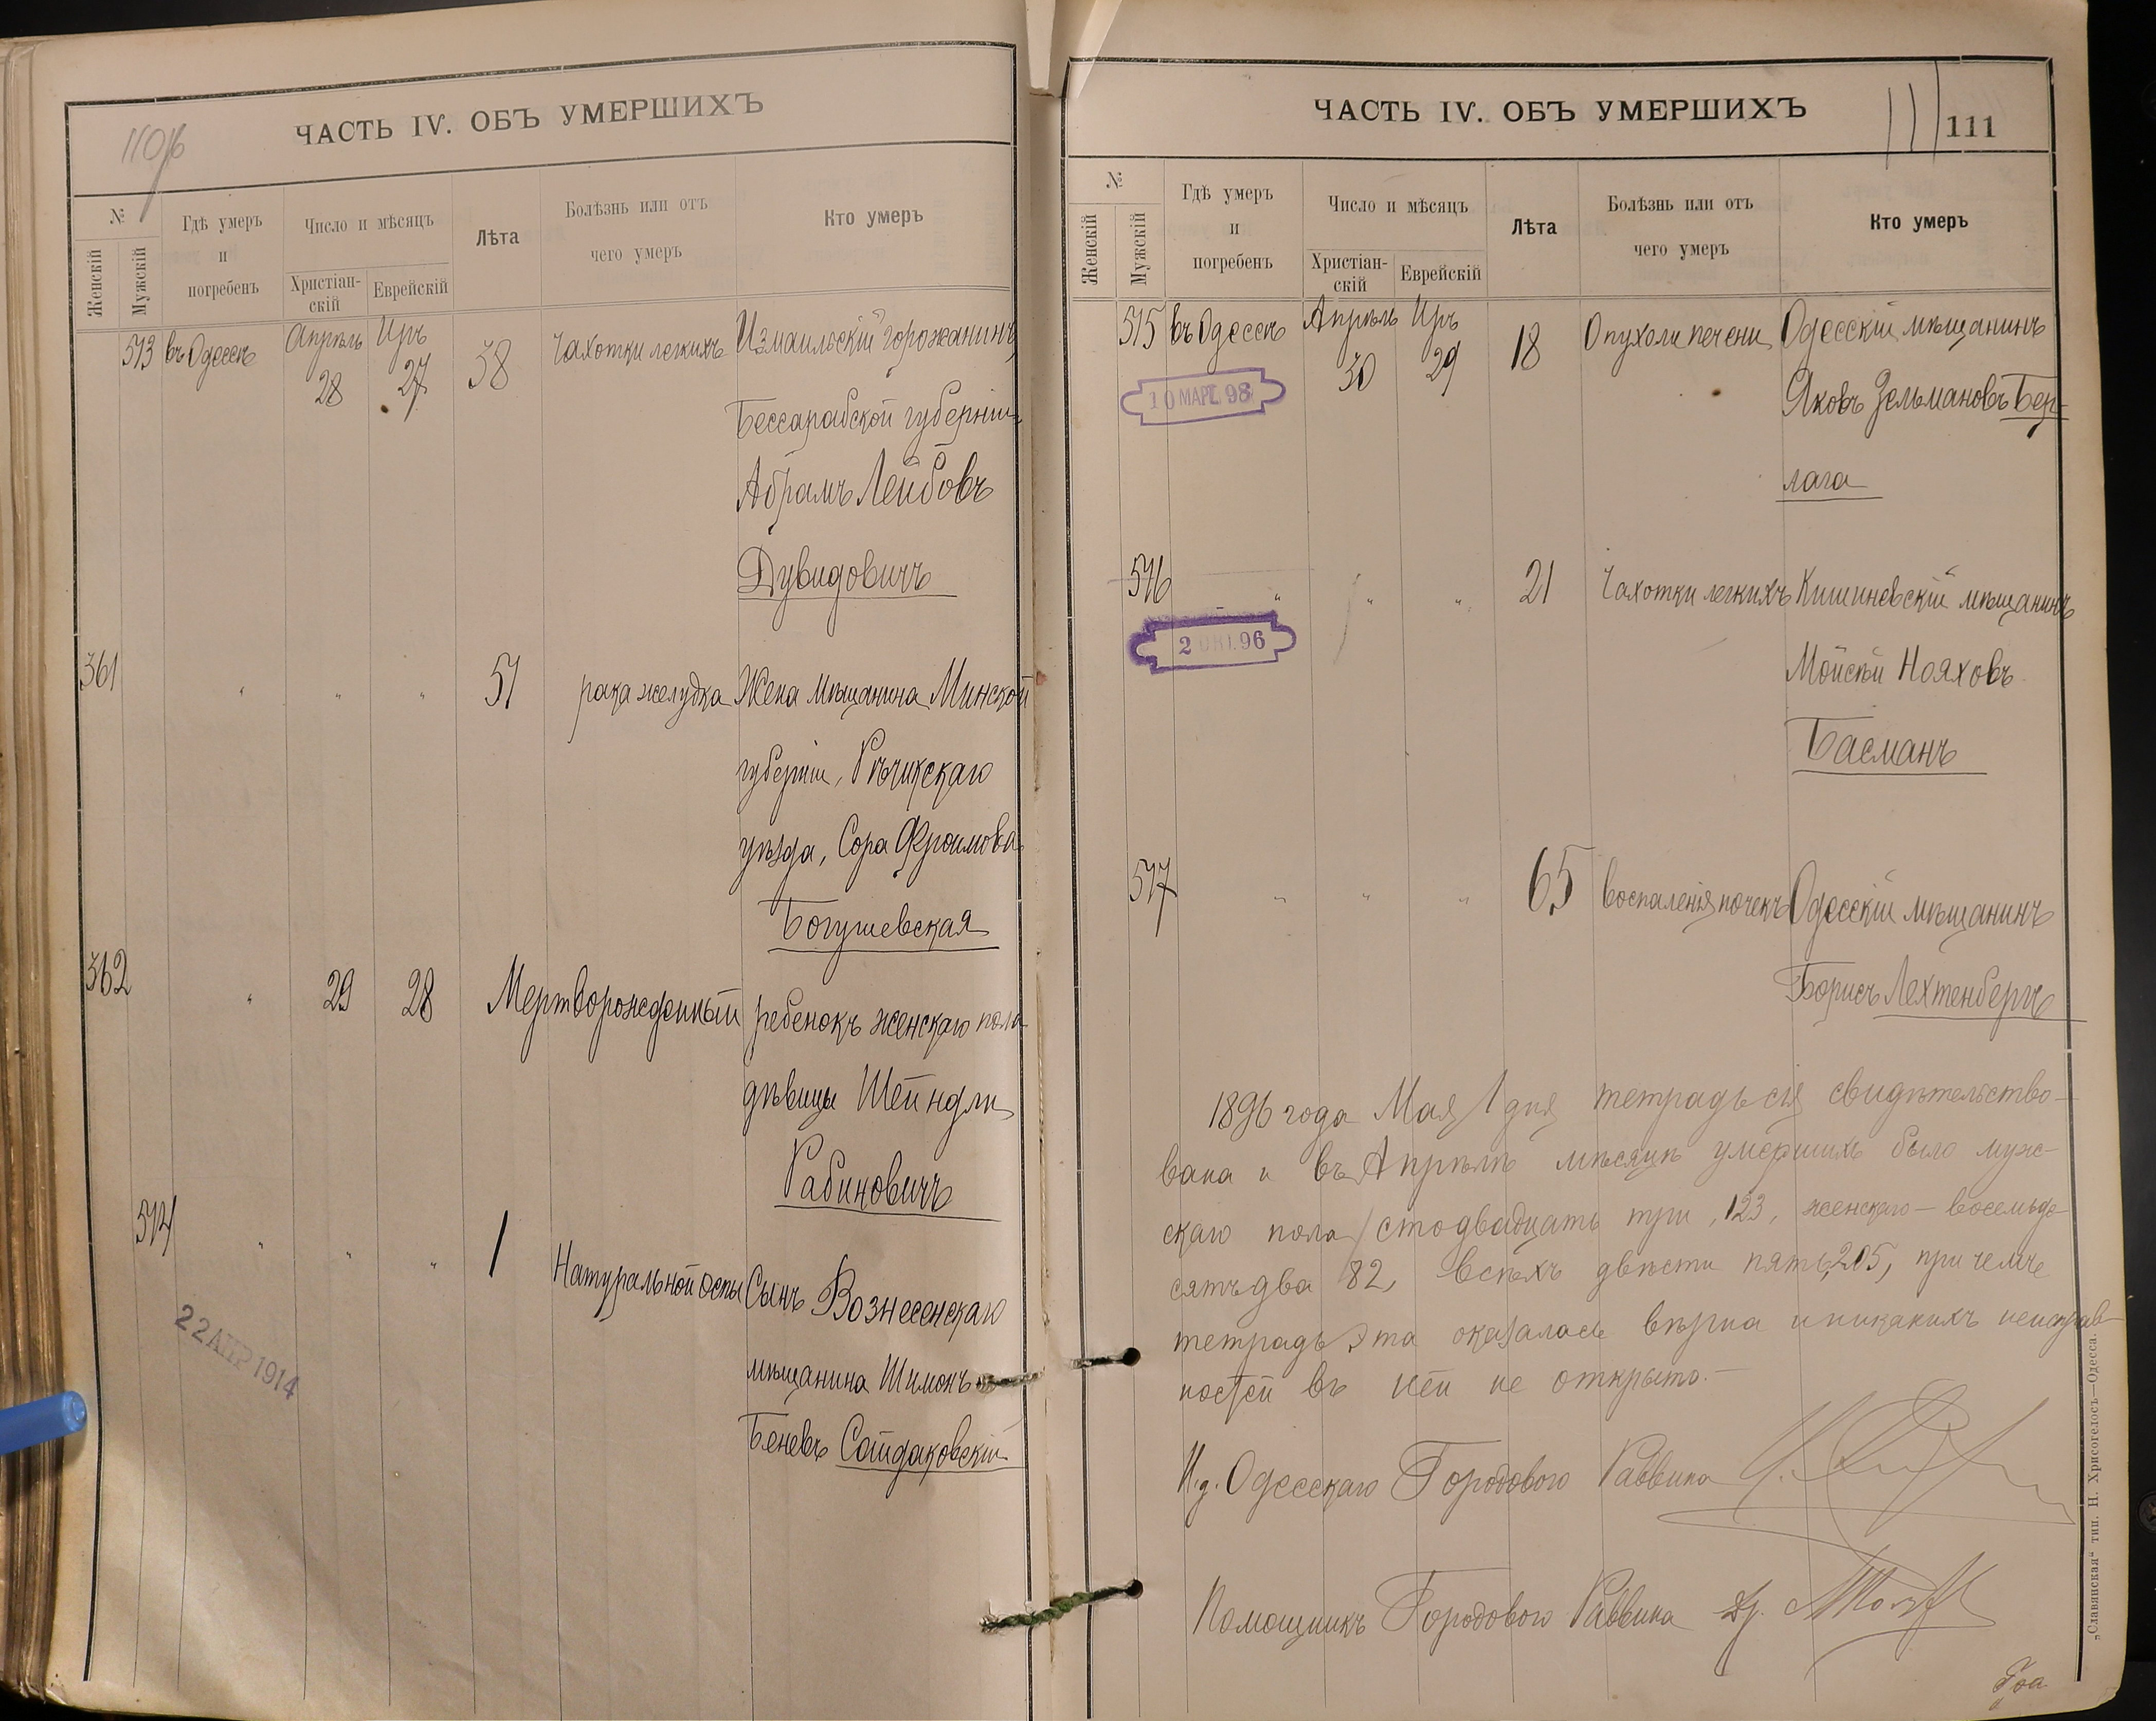 110об
ЧАСТЬ IV. ОБЪ УМЕРШИХЪ
№
Женскій
Мужскій
Гдѣ умеръ
и
погребенъ
Число и мѣсяцъ
Христіан-
скій
Еврейскій
Лѣта
Болѣзнь или отъ
чего умеръ
Кто умеръ
573 въ Одессѣ Апрѣль Иръ 38 Чахотки легкихъ Измаильскій горожанинъ,
28 27
Бессарабской губерніи
Абрамъ Лейбовъ
Дувидовичъ
361 " " " 51 рака желудка Жена мѣщанина Минской
губерніи, Рѣчицскаго
уѣзда, Сора Фроимова
Богушевская
362 " 29 28 Мертворожденный ребенокъ женскаго пола
дѣвицы Шейндли
Рабиновичъ
574 " " " 1 Натуральной оспы Сынъ Вознесенскаго
мѣщанина Шимонъ
Беневъ Сайдаковскій
22 АПР 1914
ЧАСТЬ IV. ОБЪ УМЕРШИХЪ
111
111
№
Женскій
Мужскій
Гдѣ умеръ
и
погребенъ
Число и мѣсяцъ
Христіан-
скій
Еврейскій
Лѣта
Болѣзнь или отъ
чего умеръ
Кто умеръ
575 въ Одессѣ Апрѣль Иръ 18 Опухоли печени Одесскій мѣщанинъ
30 29
10 МАРТ. 98
Яковъ Зельмановъ Бер-
лага
576 " " " 21 Чахотки легкихъ Кишиневскій мѣщанинъ
2 ОКТ. 96
Мойсѣй Нояховъ
Басманъ
577 " " " 65 воспаленія почекъ Одесскій мѣщанинъ
Борисъ Лехтенбергъ
1896 года Мая 1 дня тетрадь сія свидѣтельство-
вана и въ Апрѣлѣ мѣсяцѣ умершихъ было муж-
скаго пола сто двадцать три, 123, женскаго — восемьде
сятъ два 82, всѣхъ двѣсти пять, 205, при чемъ
тетрадь эта оказалась вѣрна и никакихъ неисправ-
ностей въ ней не открыто.—
И. д. Одесскаго Городового Раввина
Помощникъ Городового Раввина Др.
„Славянская“ тип. Н. Хрисогелосъ—Одесса.